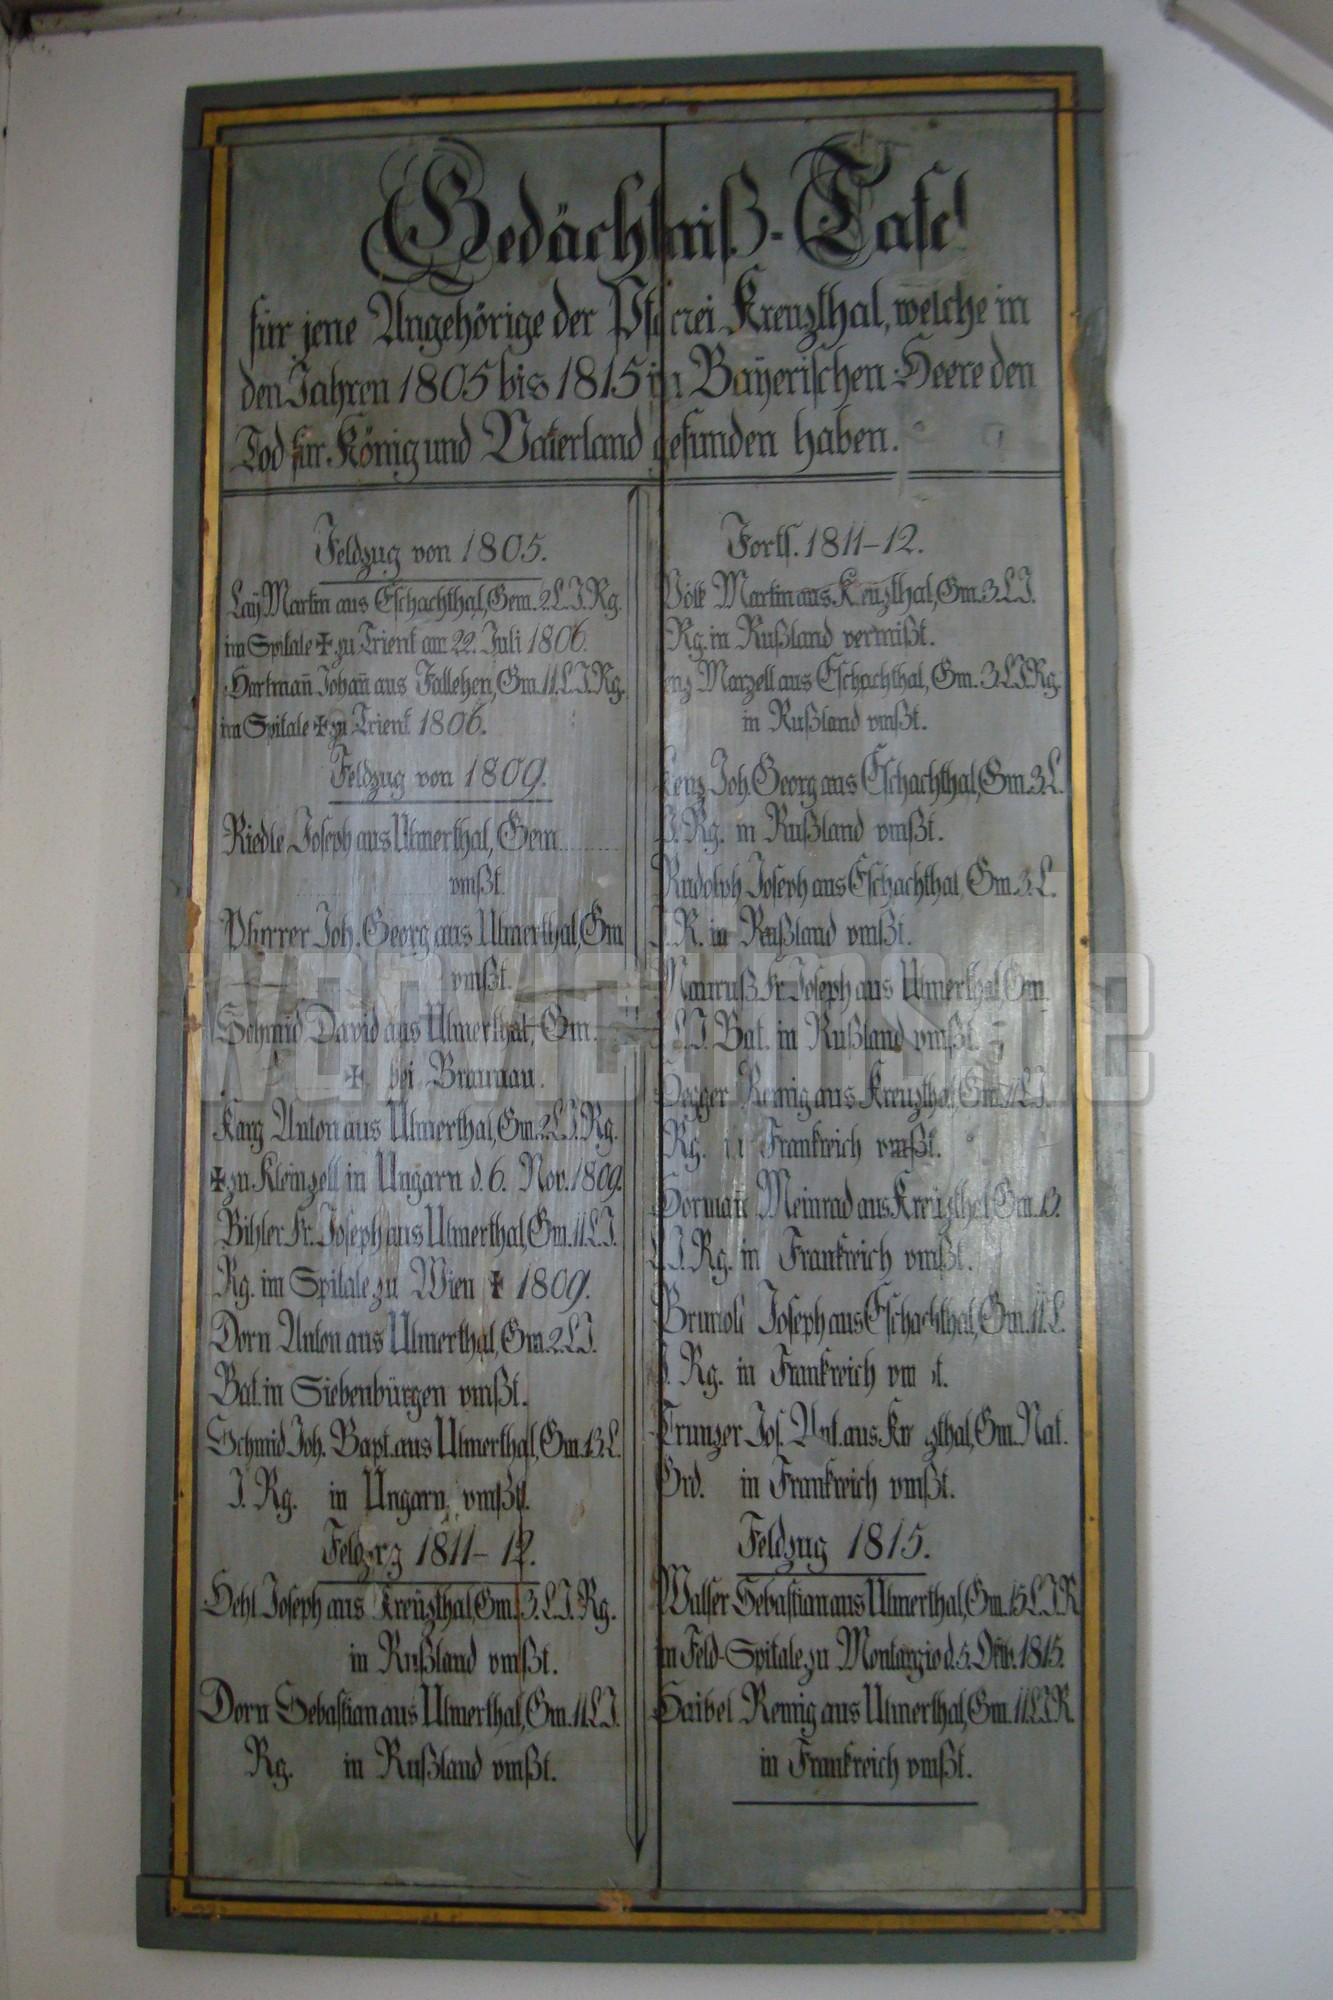 Gedächtniß-Tafel
für jene Angehörige der Pfarrei Kreuzthal, welche in
den Jahren 1805 bis 1815 im Bayerischen Heere den
Tod für König und Vaterland gefunden haben.
Feldzug von 1805.
Laÿ Martin aus Eschachthal, Gem. 2. L. I. Rg.
im Spitale ✠ zu Trient am 22. Juli 1806.
Hartmañ Johañ aus Fallehen, Gm. 11. L. I. Rg.
im Spitale ✠ zu Trient 1806.
Feldzug von 1809.
Riedle Joseph aus Ulmerthal, Gem.
vmßt.
Pfarrer Joh. Georg aus Ulmerthal, Gm
vmßt.
Schmid David aus Ulmerthal, Gm.
✠ bei Braunau.
Karg Anton aus Ulmerthal, Gm. 2. L. I. Rg.
✠ zu Kleinzell in Ungarn d. 6. Nov. 1809.
Bihler Fr. Joseph aus Ulmerthal, Gm. 11. L. I.
Rg. im Spitale zu Wien ✠ 1809.
Dorn Anton aus Ulmerthal, Gm. 2. L. I.
Bat. in Siebenbürgen vmßt.
Schmid Joh. Bapt. aus Ulmerthal, Gm. 13. L.
I. Rg. in Ungarn, vmßt.
Feldzug 1811-12.
Hehl Joseph aus Kreuzthal, Gm. 3. L. I. Rg.
in Rußland vmßt.
Dorn Sebastian aus Ulmerthal, Gm. 11. L I.
Rg. in Rußland vmßt.
Forts. 1811-12.
Völk Martin aus Kreuzthal, Gm. 3. L I.
Rg. in Rußland vermißt.
Marzell aus Eschachthal, Gm. 3. L I Rg.
in Rußland vmßt.
Joh. Georg aus Eschachthal, Gm. 3. L.
I. Rg. in Rußland vmßt.
Rudolph Joseph aus Eschachthal, Gm. 3. L.
I. R. in Rußland vmßt.
Fr. Joseph aus Ulmerthal Gm.
L. I. Bat. in Rußland vmßt.
Remig aus Kreuzthal, Gm. L. I.
Rg. in Frankreich vmßt.
Meinrad aus Kreuzthal Gm. 13.
L. I. Rg. in Frankreich vmßt.
Joseph aus Eschachthal, Gm. 11. L.
I. Rg. in Frankreich vm t.
Trunzer Jos. Ant. aus Kr zthal, Gm. Nat.
Grd. in Frankreich vmßt.
Feldzug 1815.
Walser Sebastian aus Ulmerthal, Gm. 15. L. I. R
im Feld-Spitale zu d. 5. Oktb. 1815.
Haibel Remig aus Ulmerthal, Gm. 11. L I R
in Frankreich vmßt.
warvictims.de